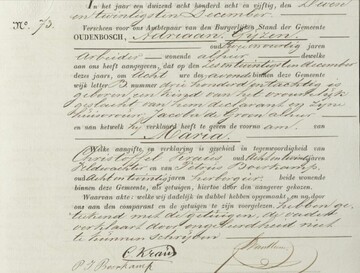 In het jaar een duizend acht honderd acht en vijftig, den Zeven
en twintigsten December
No. 73.
Verscheen voor ons Ambtenaar van den Burgerlijken Stand der Gemeente
OUDENBOSCH, Adriaan
oud jaren
arbeider wonende alhier dewelke
aan ons heeft aangegeven, dat op den zesentwintigsten december
dezes jaars, om acht ure des avonds binnen deze Gemeente
wijk letter B nummer drie honderd
geboren een kind van het vrouwelijk
geslacht van hem declarant en zyne
huisvrouw Jacoba de Groen alhier
en aan hetwelk hy verklaard heeft te geven de voornaam van
Maria.
Welke aangifte, en verklaring is geschied in tegenwoordigheid van
Christoffel Kraus oud achtentwintig jaren
Veldwachter en van Petrus
oud achtentwintig jaren herbergier beide wonende
binnen deze Gemeente, als getuigen, hiertoe door den aangever gekozen.
Waarvan akte: welke wij dadelijk in dubbel hebben opgemaakt, en na door
ons aan den comparant en de getuigen te zijn voorgelezen, hebben ge-
teekend met de getuigen, de vader
verklaard door ongeleerdheid niet
te kunnen schrijven
C. Kraus